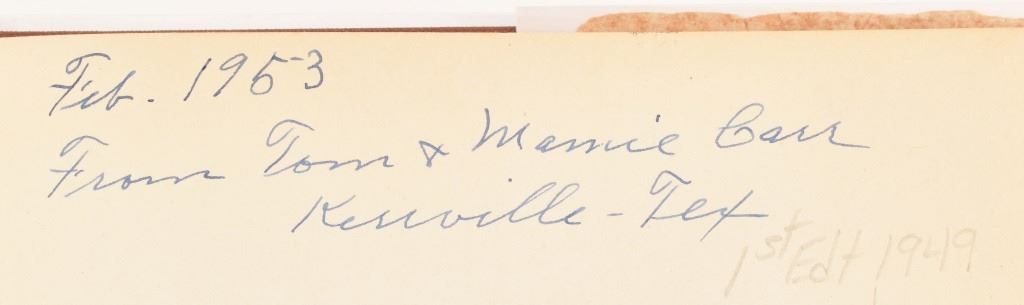 Feb. 1953
From Tom & Mamie Carr
Kerrville - Tex
1st Edt 1949